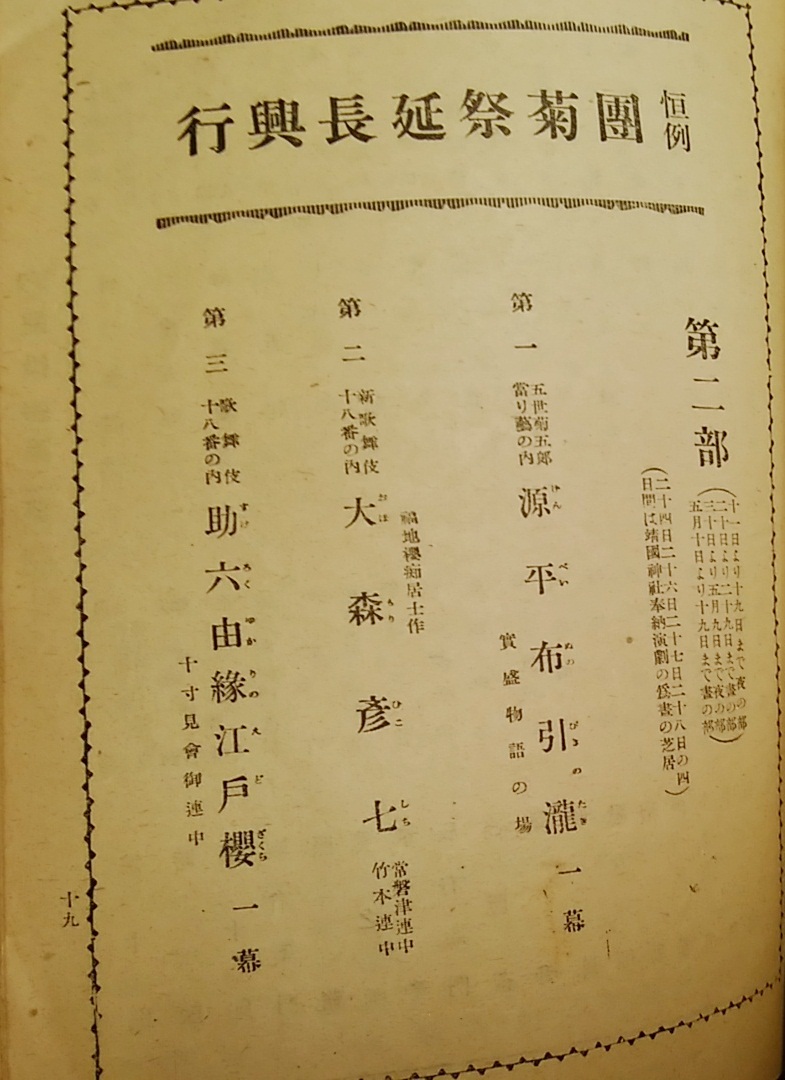 恒例
團菊祭延長興行
第二部
(十一日より十九日まで夜の部
二十日より二十九日まで晝の部
三十日より五月九日まで夜の部
五月十日より十九日まで晝の部)
(二十四日二十六日二十七日二十八日の四
日間は靖國神社奉納演劇の爲晝の芝居)
第一
五世菊五郎
當り藝の内
源平布引瀧 一幕
げんぺいぬのびきのたき
實盛物語の場
第二
新歌舞伎
十八番の内
福地櫻痴居士作
大森彥七
おほもりひこしち
常磐津連中
竹本連中
第三
歌舞伎
十八番の内
助六由緣江戶櫻 一幕
すけろくゆかりのえどざくら
十寸見會御連中
十九